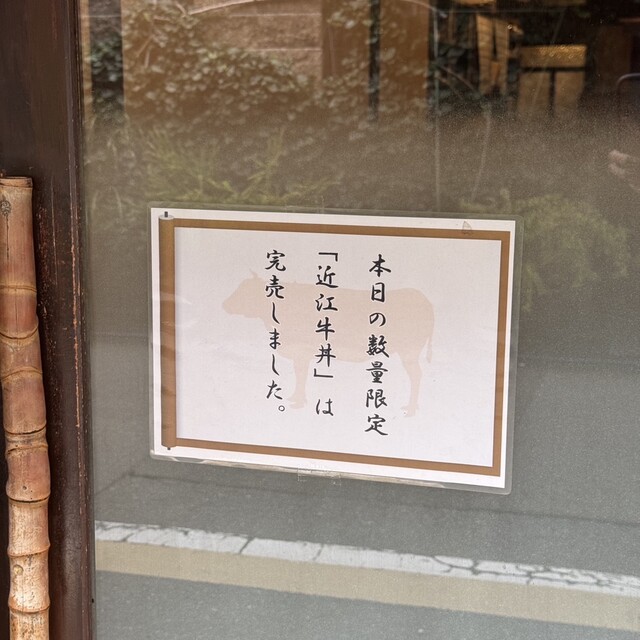 本日の数量限定
「近江牛丼」は
完売しました。